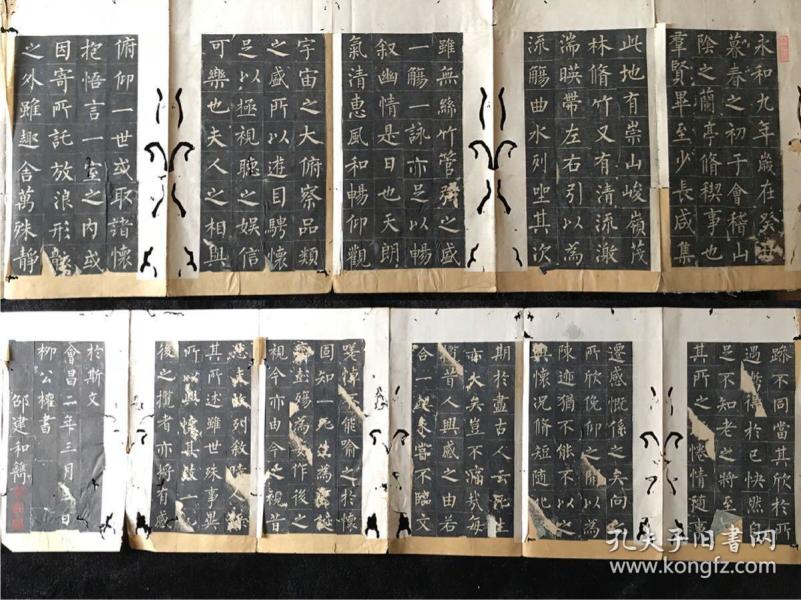 永和九年歲在癸丑
暮春之初于會稽山
陰之蘭亭脩稧事也
羣賢畢至少長咸集
此地有崇山峻嶺茂
林脩竹又有清流激
湍暎帶左右引以為
流觴曲水列坐其次
雖無絲竹管弦之盛
一觴一詠亦足以暢
叙幽情是日也天朗
氣清惠風和暢仰觀
宇宙之大俯察品類
之盛所以遊目騁懷
足以極視聽之娛信
可樂也夫人之相與
俯仰一世或取諸懷
抱悟言一室之内或
因寄所託放浪形骸
之外雖趣舍萬殊靜
躁不同當其欣於所
遇得於己快然自
足不知老之將至
其所之惓情隨事
遷感慨係之矣向之
所欣俛仰之間以為
陳迹猶不能不以之
興懷況脩短隨化
期於盡古人云死生
亦大矣豈不痛哉每
昔人興感之由若
合一契未嘗不臨文
嗟悼不能喻之於懷
固知一死生為誕
彭殤為妄作後之
視今亦由今之視昔
悲夫故列叙時人
其所述雖世殊事異
所以興懷其致一
後之攬者亦將有感
於斯文
會昌二年三月日
柳公權書
邵建和鐫
孔夫子旧書网
www.kongfz.com